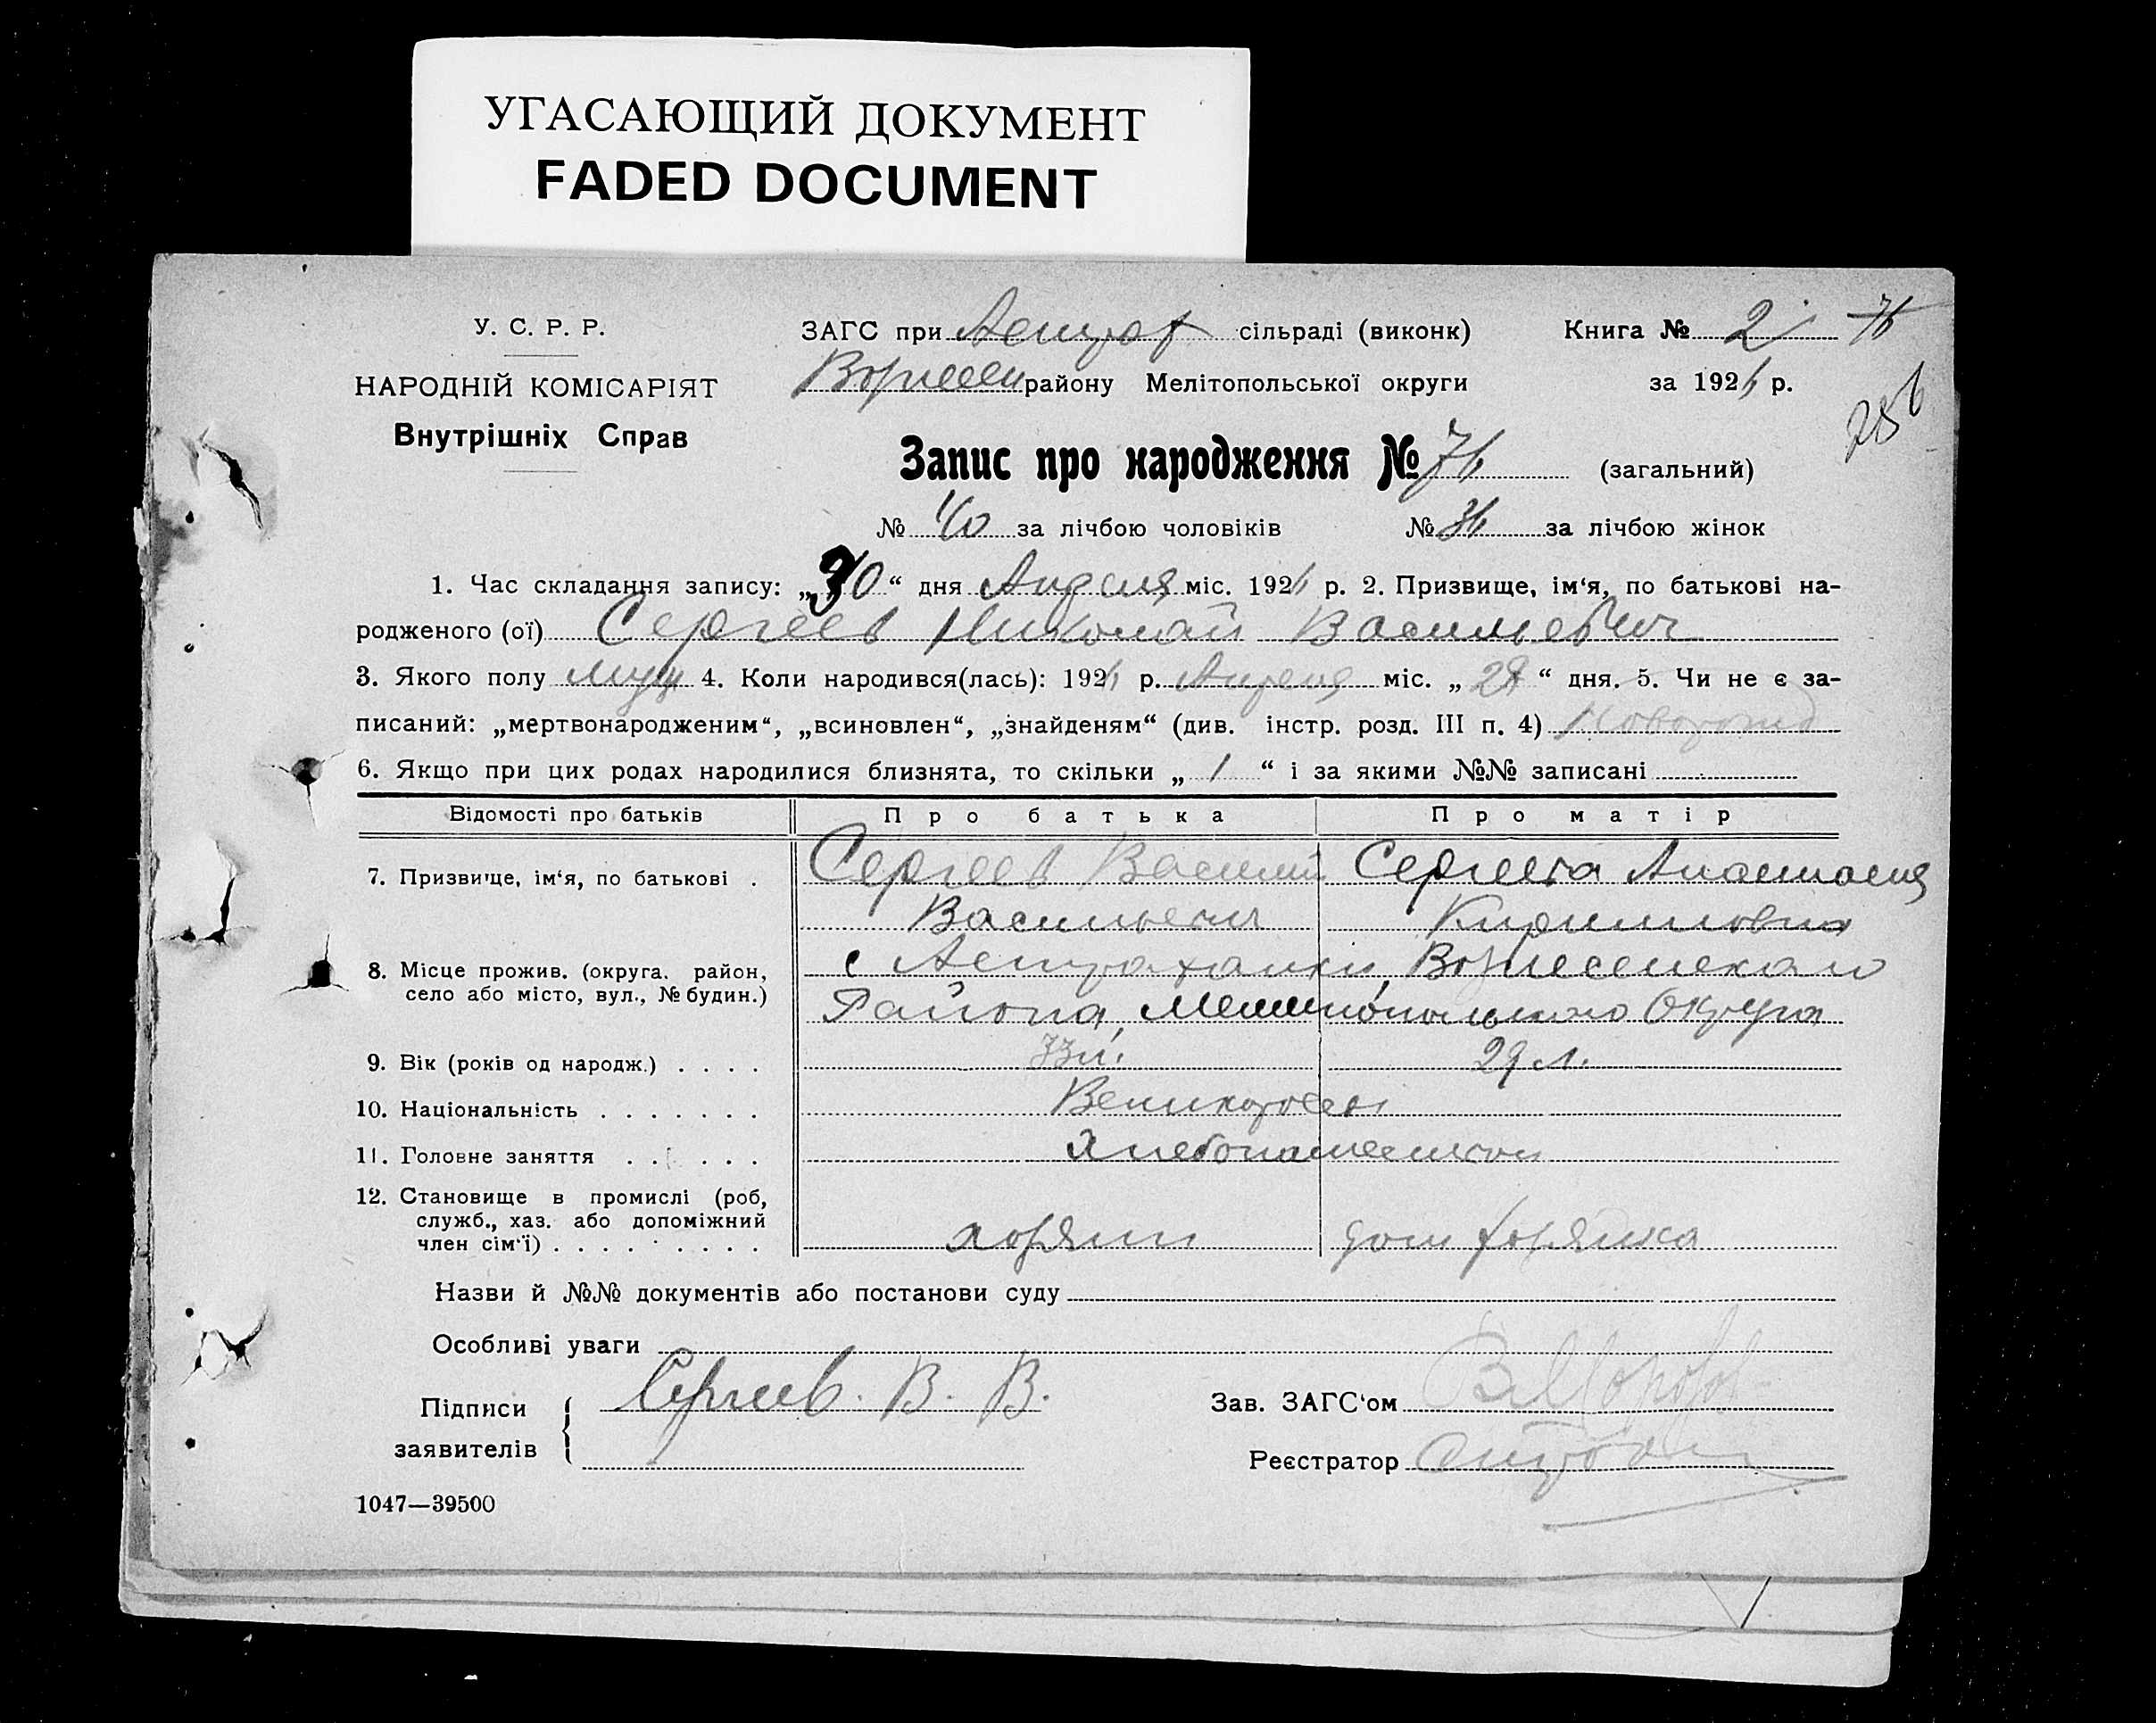 УГАСАЮЩИЙ ДОКУМЕНТ
FADED DOCUMENT
У. С. Р. Р.
НАРОДНІЙ КОМІСАРІЯТ
Внутрішніх Справ
ЗАГС при Астрах сільраді (виконк) Книга № 2 76
Вознесен району Мелітопольської округи за 1926 р.
Запис про народження № 76 (загальний)
№ 40 за лічбою чоловіків № 36 за лічбою жінок
1. Час складання запису: „30“ дня Апреля міс. 1926 р. 2. Призвище, ім‘я, по батькові на-
родженого (ої) Сергеев Николай Васильевич
3. Якого полу муж 4. Коли народився(лась): 1926 р. Апреля міс. „ “ дня. 5. Чи не є за-
писаний: „мертвонародженим“, „всиновлен“, „знайденям“ (див. інстр. розд. III п. 4)Новорожд
6. Якщо при цих родах народилися близнята, то скільки „ 1 “ і за якими №№ записані
Відомості про батьків Про батька Про матір
7. Призвище, ім‘я, по батькові . Сергеев Василий Сергеева Анастасия
Васильевич Кирилловна
8. Місце прожив. (округа, район, село або місто, вул., № будин.) с Астраханки, Вознесенскаго
Района, Мелитопольского Округа
9. Вік (років од народж.) . . . . 33 л. 29 л.
10. Національність . . . . . . . Великоросы
11. Головне заняття . . . . . . Хлебопашеством
12. Становище в промислі (роб, служб., хаз. або допоміжний член сім‘ї) . . . . . . . . . хозяин дом хозяйка
Назви й №№ документів або постанови суду
Особливі уваги
Підписи заявителів Сергеев. В. В. Зав. ЗАГС‘ом
Реєстратор
1047—39500